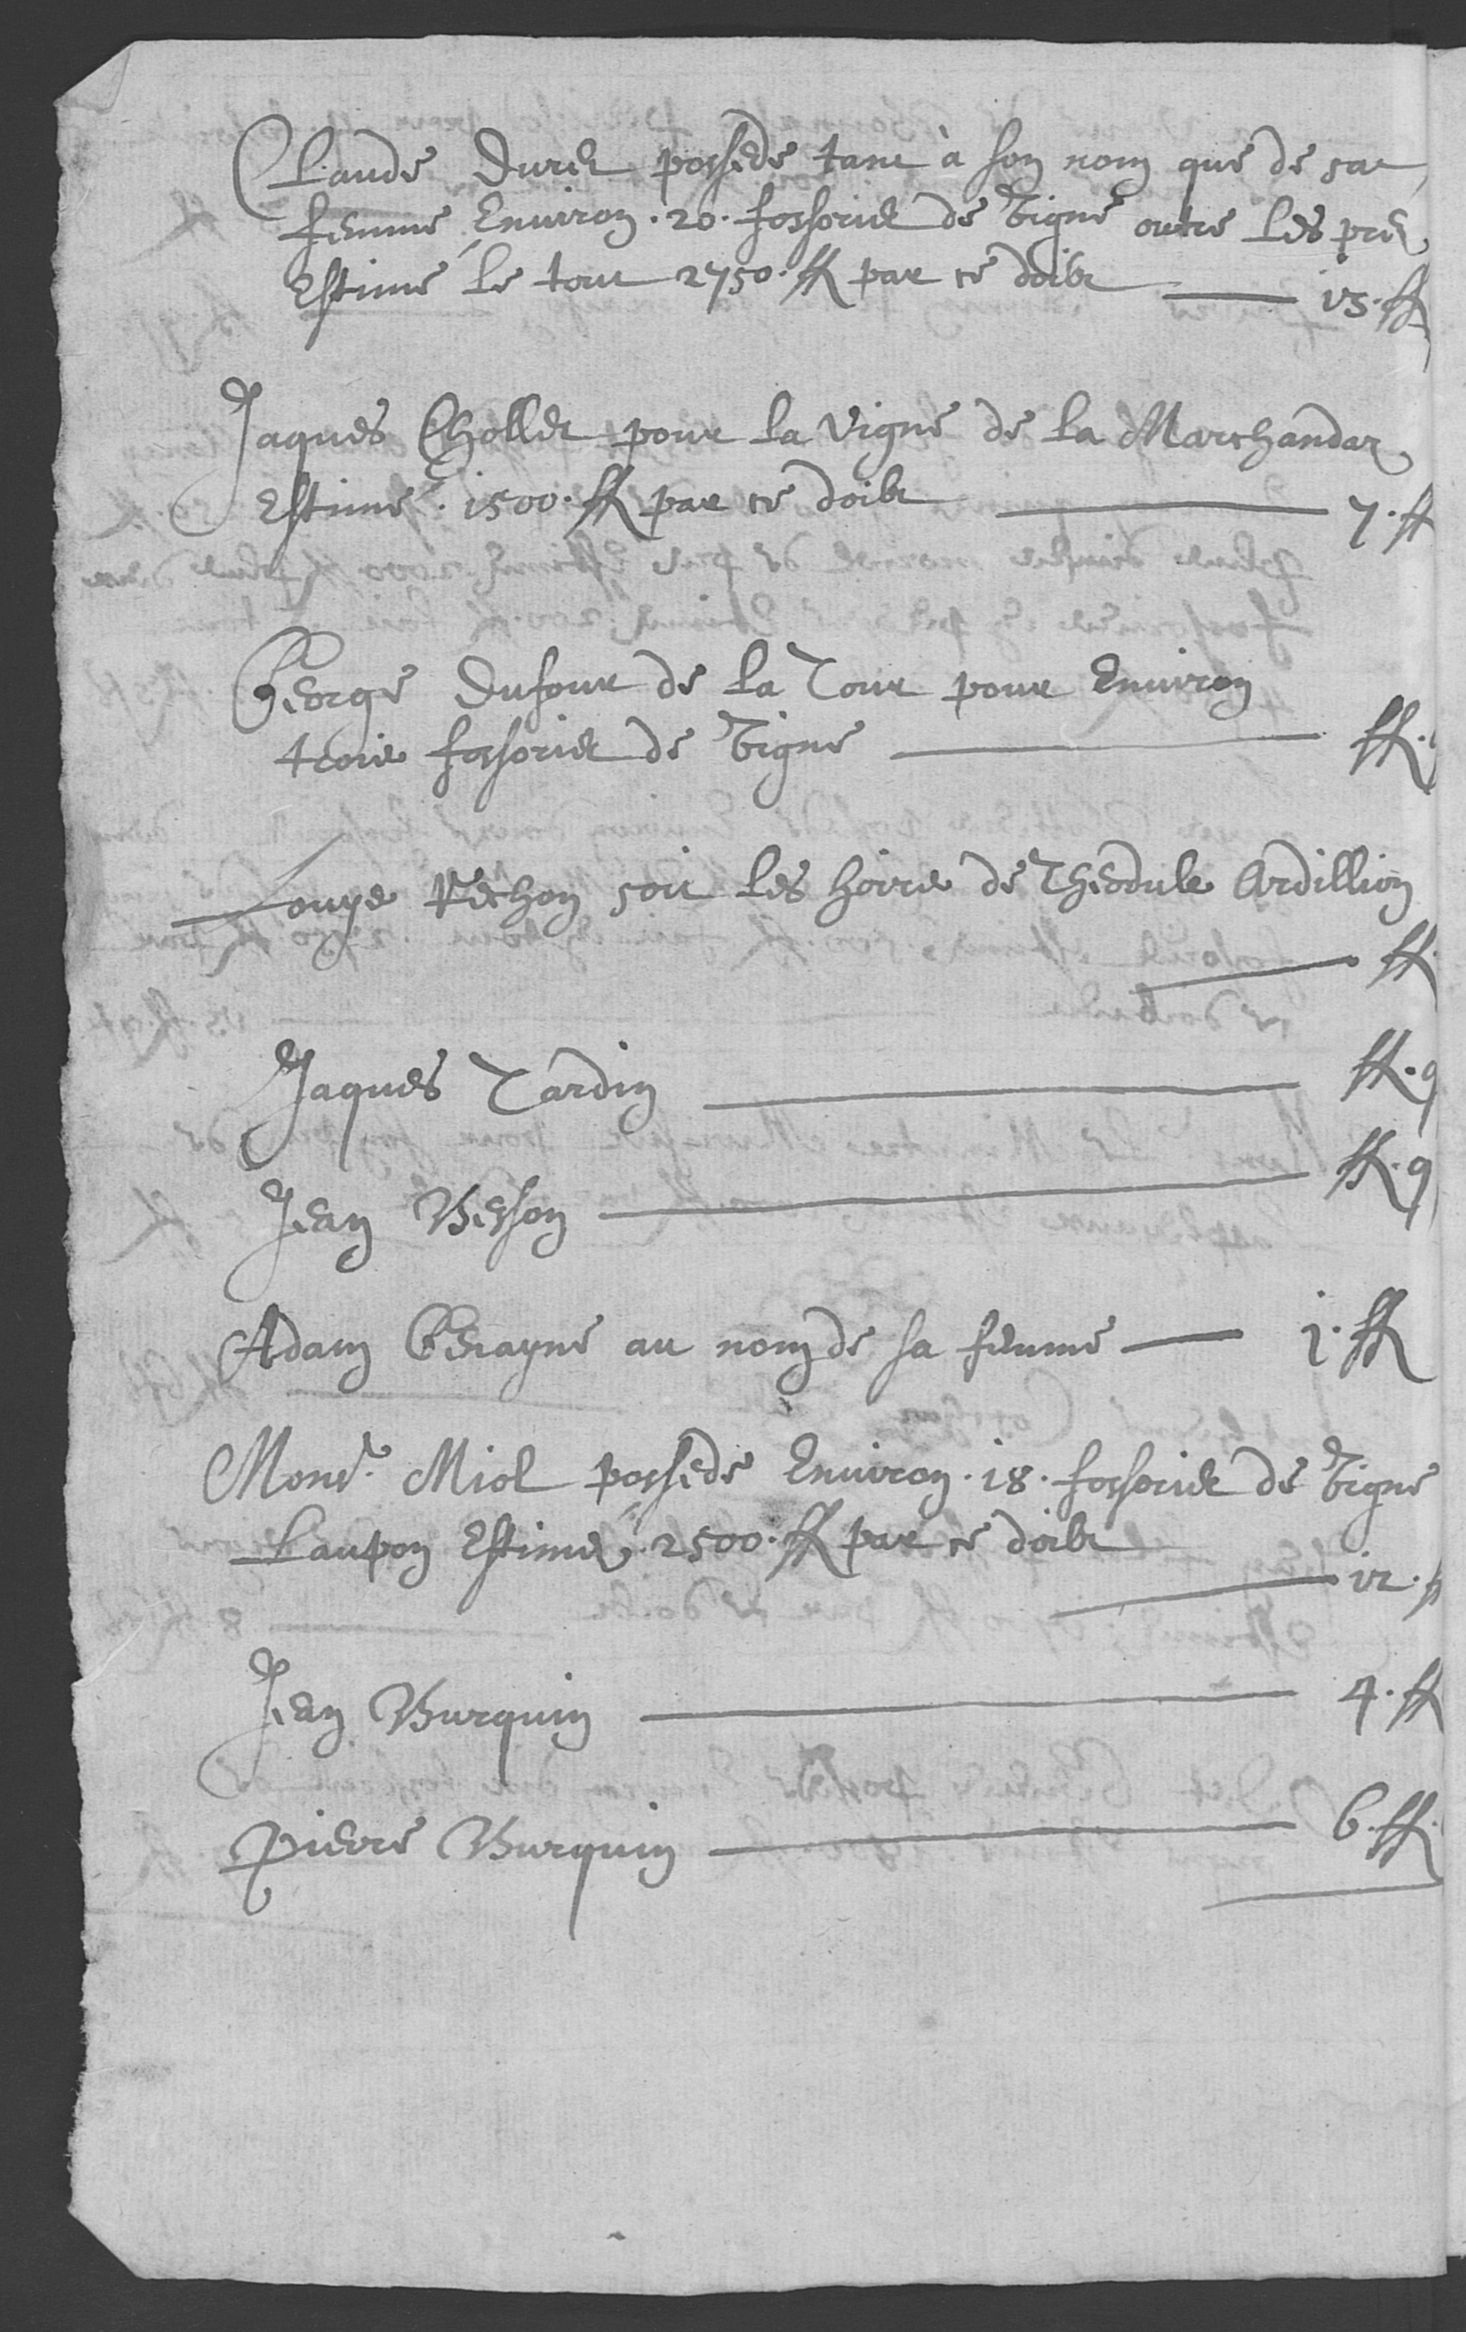 Claude Duret possede tant à son nom que de sa
femme Environ .20. fossoriet de Vigne outre les prez
Estime le tout 2750. ff par ce doibt — 13. ff
Jaques Chollet pour la Vigne de la Marchandaz
Estime .1500. ff par ce doibt — 7. ff
George Dufour de la Tour pour Environ
trois fossoriet de Vigne — ff.
Louys Rechon soit les hoirs de Theodule Ardillion
— ff.
Jaques Tardin — ff. 9
Jean Besson — ff. 9
Adam au nom de sa femme — 1. ff
Monsr. Miol possede Environ .18. fossoriet de Vigne
Laupon Estimez .2500. ff par ce doibt
— 12. ff
Jean Burquin — 4. ff
Pierre Burquin — 6. ff.